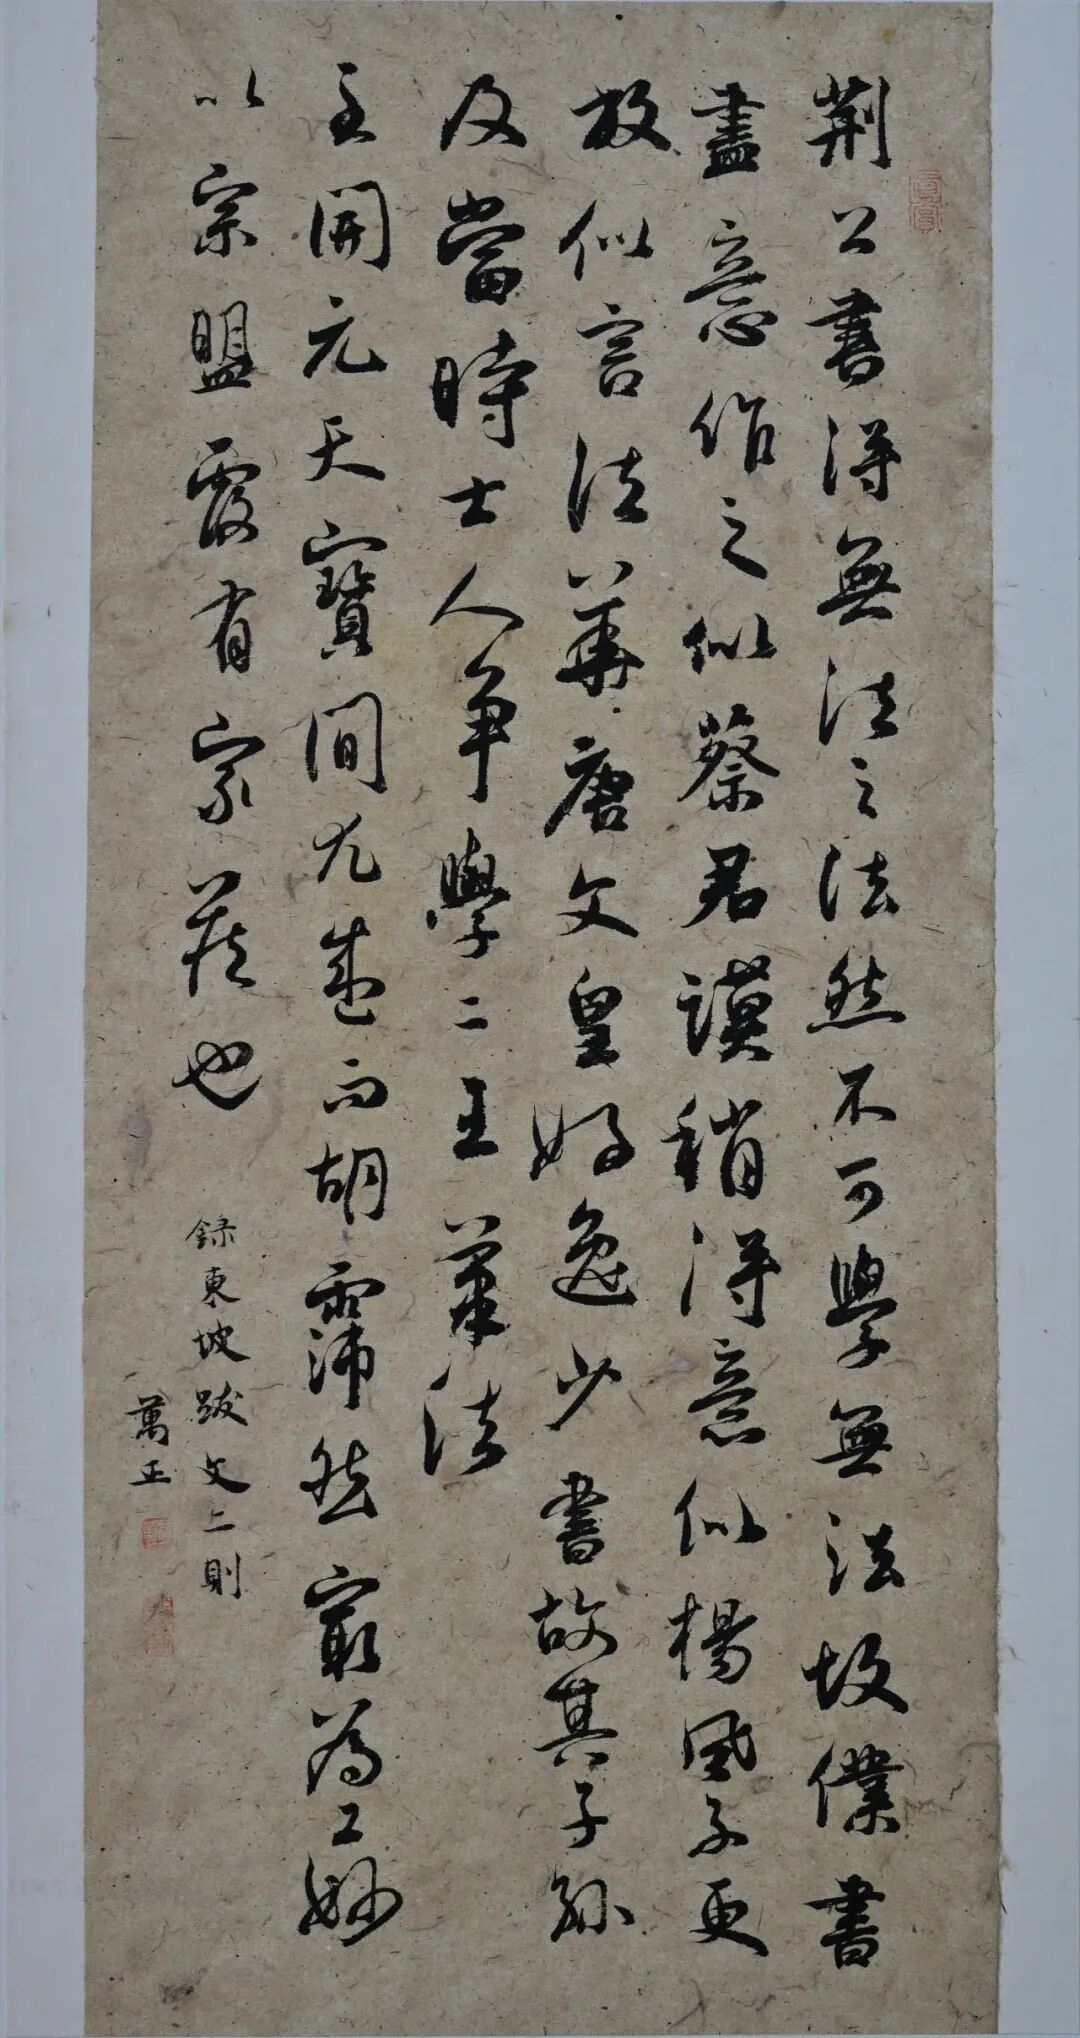 荆公書得無法之法然不可學無法故僕書
盡意作之似蔡君謨稍得意似楊風子更
放似言法華唐文皇好逸少書故其子孫
及當時士人争學二王筆法
至開元天寶間尤盛而胡霈然最為工妙
以宗盟覆有家藏也
錄東坡跋文二則
萬正